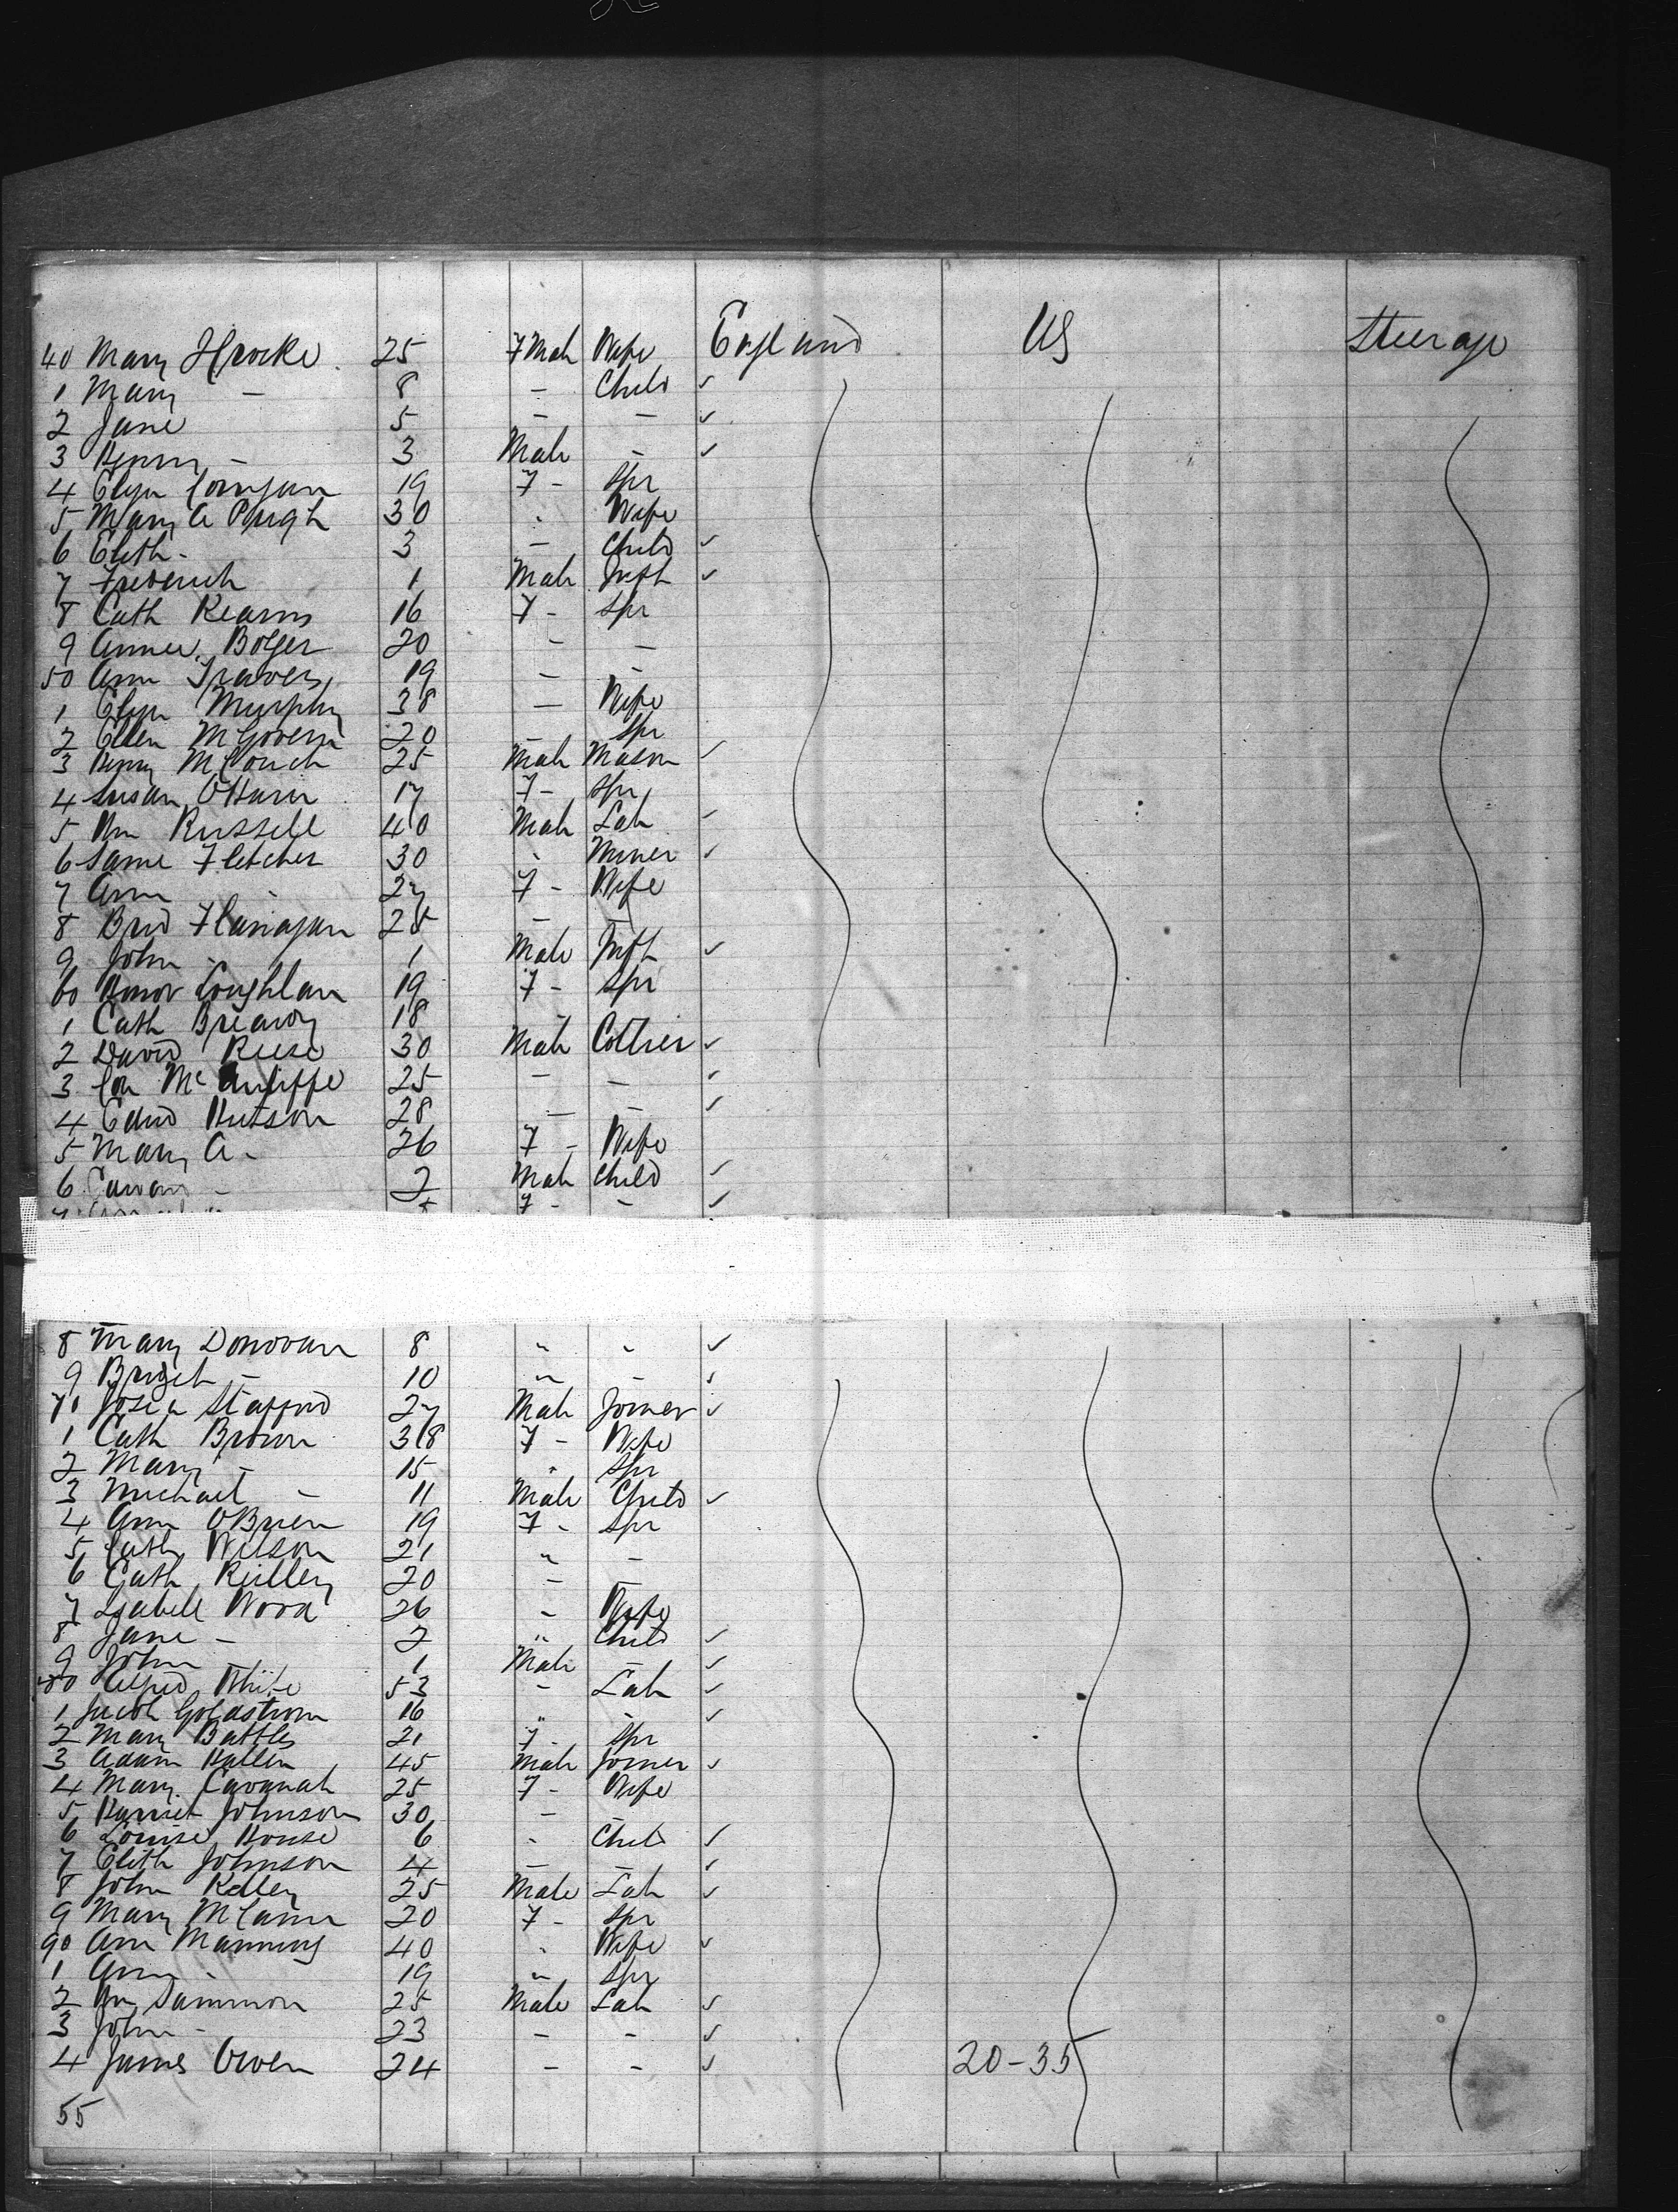 40 Mary 25 F Male Wife England US Steerage
1 Mary - 8 - Child ✓
2 Jane 5 - - ✓
3 Henry - 3 Male - ✓
4 Eliza 19 F - Spr
5 Mary A Pugh 30 " Wife
6 Elith - 3 - Child ✓
7 Frederick 1 Male Inft ✓
8 Cath Kearns 16 F - Spr
9 Annie Bolger 20 - -
50 Ann Travers 19 - -
1 Eliza Murphy 38 - Wife
2 Ellen McGovern 20 - Spr
3 Henry 25 Male Mason ✓
4 Susan 17 F - Spr
5 Wm Russell 40 Male Lab ✓
6 Fletcher 30 " Miner ✓
7 Ann - 27 F - Wife
8 Brid Flanagan 25 - -
9 John - 1 Male Inft ✓
60 Honor Coughlan 19 F - Spr
1 Cath 18 - -
2 David Reese 30 Male Collier ✓
3 Con McAuliffe 25 - - ✓
4 Edwd Hutson 28 - - ✓
5 Mary A - 26 F - Wife
6 - 2 Male Child ✓
7 F - - ✓
8 Mary Donovan 8 " " ✓
9 Bridget - 10 " - ✓
70 Stafford 27 Male Joiner ✓
1 Cath Brown 38 F - Wife
2 Mary - 15 " Spr
3 Michael - 11 Male Child ✓
4 Ann OBrien 19 F - Spr
5 Cath Wilson 21 " -
6 Cath Reilley 20 - -
7 Isabell Wood 26 - Wife
8 Jane - 2 " Child ✓
9 John 1 Male - ✓
80 Alfred White 53 - Lab ✓
1 Jacob Goldstrom 16 " - ✓
2 Mary Battles 21 F - Spr
3 Adam 45 Male Joiner ✓
4 Mary Cavanah 25 F - Wife
5 Harriet Johnson 30 - -
6 Louise House 6 " Child ✓
7 Elith Johnson 4 - - ✓
8 John Kelley 25 Male Lab ✓
9 Mary McCann 20 F - Spr
90 Ann Manning 40 " Wife ✓
1 - 19 " Spr
2 Wm Sammon 25 Male Lab ✓
3 John - 23 - - ✓
4 James Owen 24 - - ✓ 20-35
55